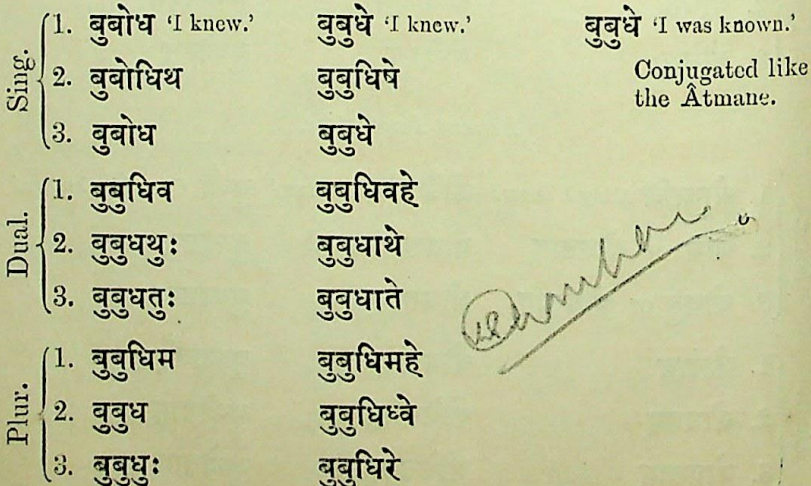 Sing. 1. बुबोध 'I knew.' बुबुधे 'I knew.' बुबुधे 'I was known.'
2. बुबोधिथ बुबुधिषे Conjugated like
the Âtmane.
3. बुबोध बुबुधे
Dual. 1. बुबुधिव बुबुधिवहे
2. बुबुधथुः बुबुधाथे
3. बुबुधतुः बुबुधाते
Plur. 1. बुबुधिम बुबुधिमहे
2. बुबुध बुबुधिध्वे
3. बुबुधुः बुबुधिरे